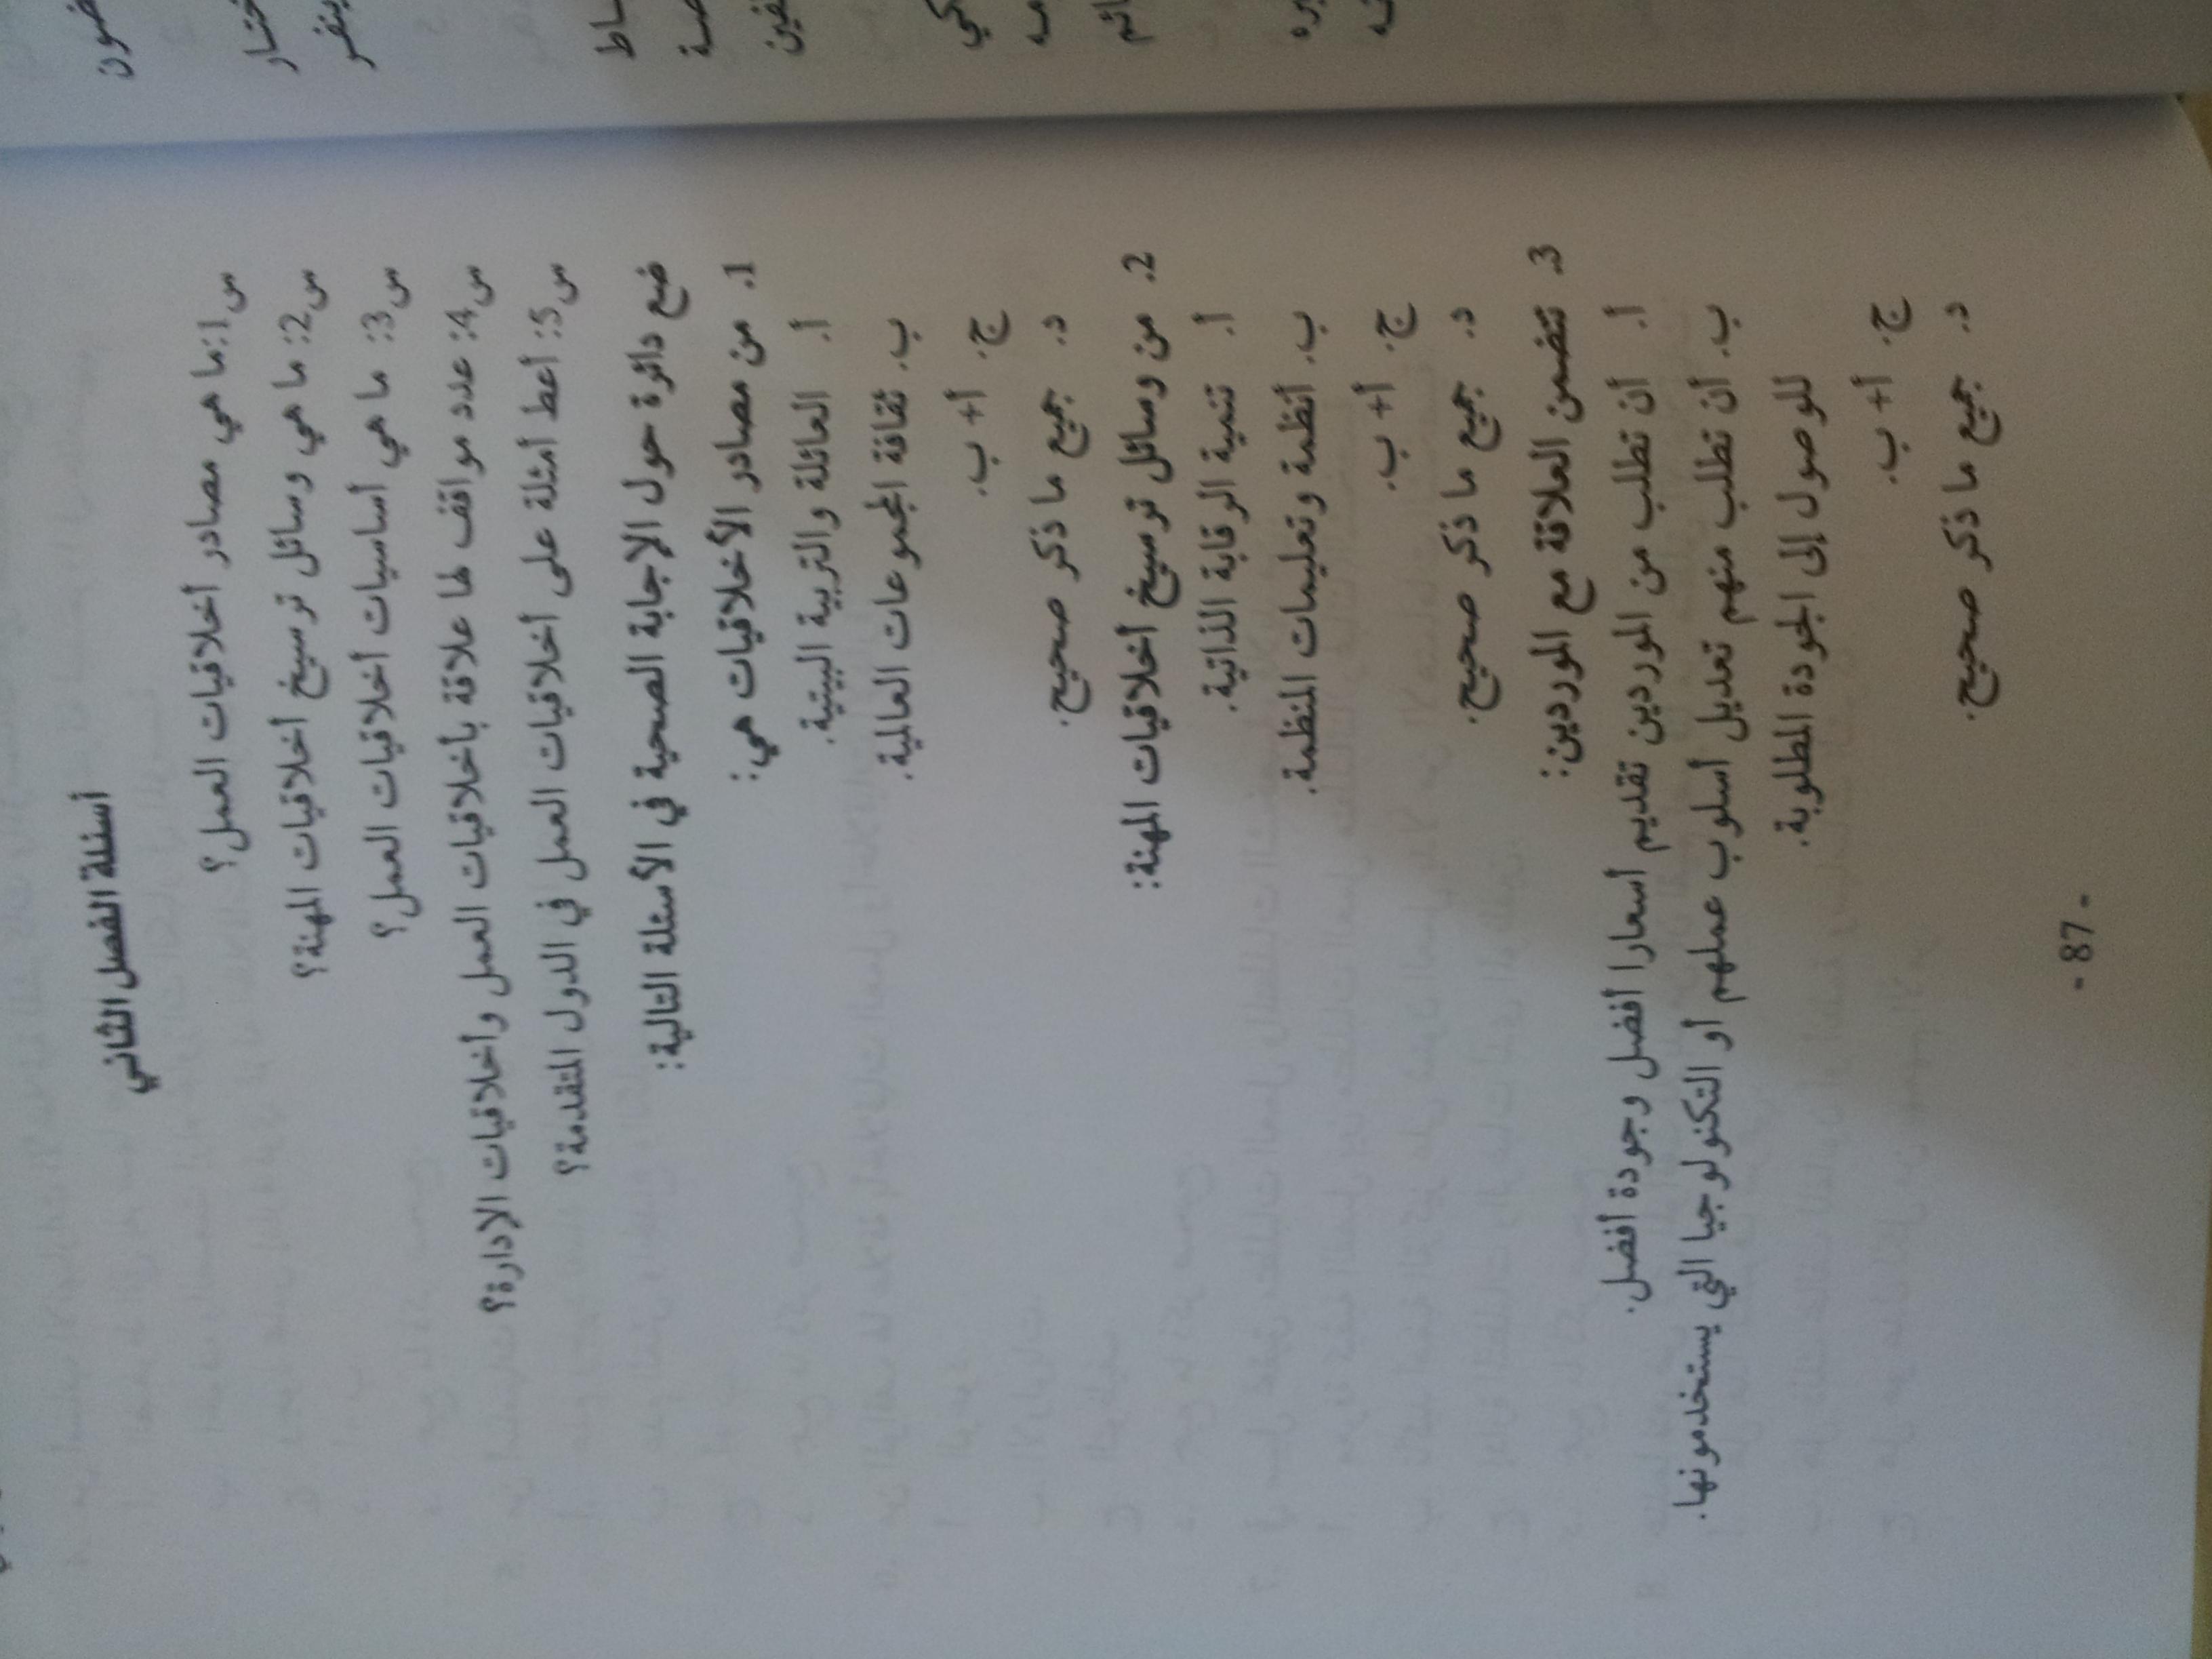 أسئلة الفصل الثاني
س1: ما هي مصادر أخلاقيات العمل؟
س2: ما هي وسائل ترسيخ أخلاقيات المهنة؟
س3: ما هي أساسيات أخلاقيات العمل؟
س4: عدد مواقف لها علاقة بأخلاقيات العمل وأخلاقيات الإدارة؟
س5: أعط أمثلة على أخلاقيات العمل في الدول المتقدمة؟
ضع دائرة حول الاجابة الصحية في الأسئلة التالية:
1. من مصادر الأخلاقيات هي:
أ. العائلة والتربية البيتية.
ب. ثقافة المجموعات العالمية.
ج. أ+ ب.
د. جميع ما ذكر صحيح.
2. من وسائل ترسيخ أخلاقيات المهنة:
أ. تنمية الرقابة الذاتية.
ب. أنظمة وتعليمات المنظمة.
ج. أ+ ب.
د. جميع ما ذكر صحيح.
3. تتضمن العلاقة مع الموردين:
أ. أن تطلب من الموردين تقديم أسعارا أفضل وجودة أفضل.
ب. أن تطلب منهم تعديل أسلوب عملهم أو التكنولوجيا التي يستخدمونها.
للوصول إلى الجودة المطلوبة.
ج. أ+ ب.
د. جميع ما ذكر صحيح.
- 87 -